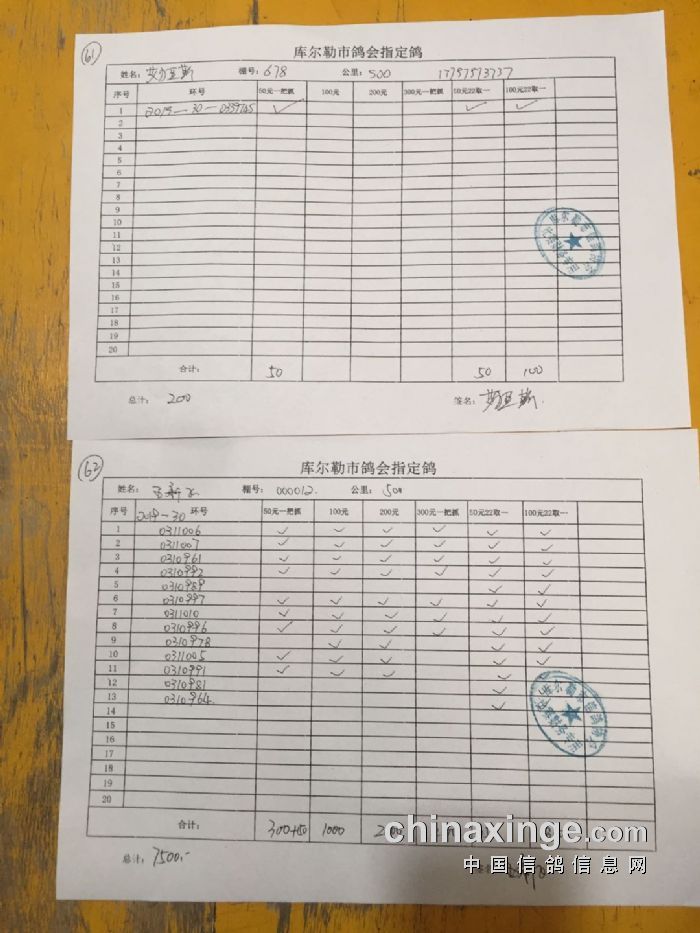 61
库尔勒市鸽会指定鸽
姓名： 棚号：678 公里：500 17757573737
序号 环号 50元一把抓 100元 200元 300元一把抓 50元22取一 100元22取一
1 2019-30-0339765 ✓ ✓ ✓
2
3
4
5
6
7
8
9
10
11
12
13
14
15
16
17
18
19
20
合计： 50 50 100
总计： 200 签名：
62
库尔勒市鸽会指定鸽
姓名： 棚号：000012. 公里：
序号 2019-30 环号 50元一把抓 100元 200元 300元一把抓 50元22取一 100元22取一
1 0311006 ✓ ✓ ✓ ✓ ✓ ✓
2 0311007 ✓ ✓ ✓ ✓ ✓ ✓
3 0310961 ✓ ✓ ✓ ✓ ✓ ✓
4 0310992 ✓ ✓ ✓ ✓ ✓ ✓
5 0310989 ✓ ✓
6 0310997 ✓ ✓ ✓ ✓ ✓ ✓
7 0311010 ✓ ✓ ✓ ✓ ✓ ✓
8 0310996 ✓ ✓ ✓ ✓ ✓ ✓
9 0310978 ✓ ✓ ✓ ✓
10 0311005 ✓ ✓ ✓ ✓ ✓
11 0310991 ✓ ✓ ✓ ✓
12 0310981 ✓
13 0310964. ✓
14
15
16
17
18
19
20
合计： 300+150 1000
总计： 7500.-
chinaxinge.com
中国信鸽信息网